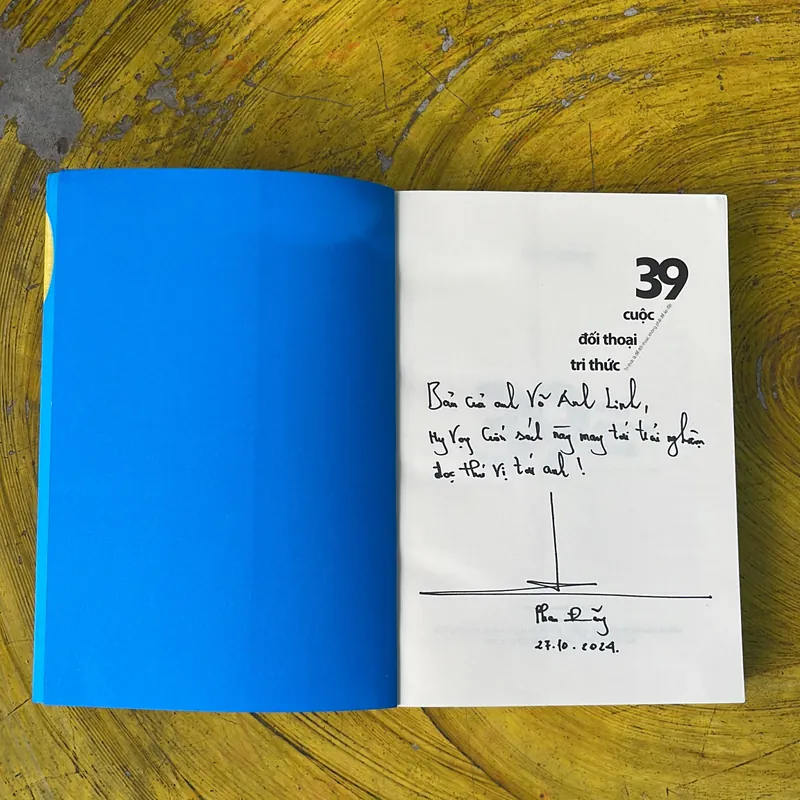 39
cuộc
đối thoại
tri thức
Bản của anh Võ Anh Linh,
Hy vọng cuốn sách này mang tới trải nghiệm
đọc thú vị tới anh!
Phan Đăng
27.10.2024.